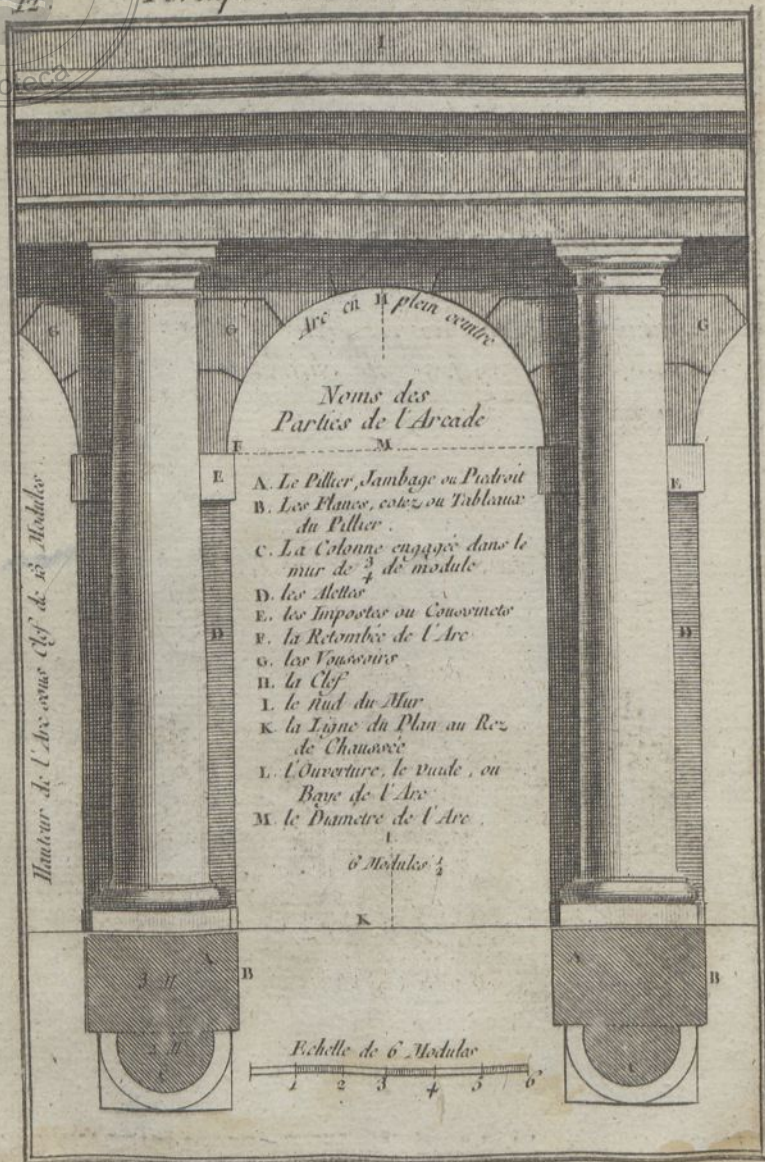 12.
oteca
I
G
G
Arc en H plein ceintre
G
Noms des
Parties de l'Arcade
F
M
E
E
A. Le Pillier, Jambage ou Piedroit
B. Les Flancs, cotez, ou Tableaux
du Pillier.
C. La Colonne engagée dans le
mur de 3/4 de module.
D. les Alettes
E. les Impostes ou Coussinets
F. la Retombée de l'Arc
G. les Voussoirs
H. la Clef
I. le nud du Mur
K. la Ligne du Plan au Rez
de Chaussée
L. l'Ouverture, le vuide, ou
Baye de l'Arc
M. le Diametre de l'Arc.
D
D
Hauteur de l'Arc sous Clef de 13 Modules
L
6 Modules 1/2
K
A
B
3 M
A
B
2 M
Echelle de 6 Modules
1 2 3 4 5 6